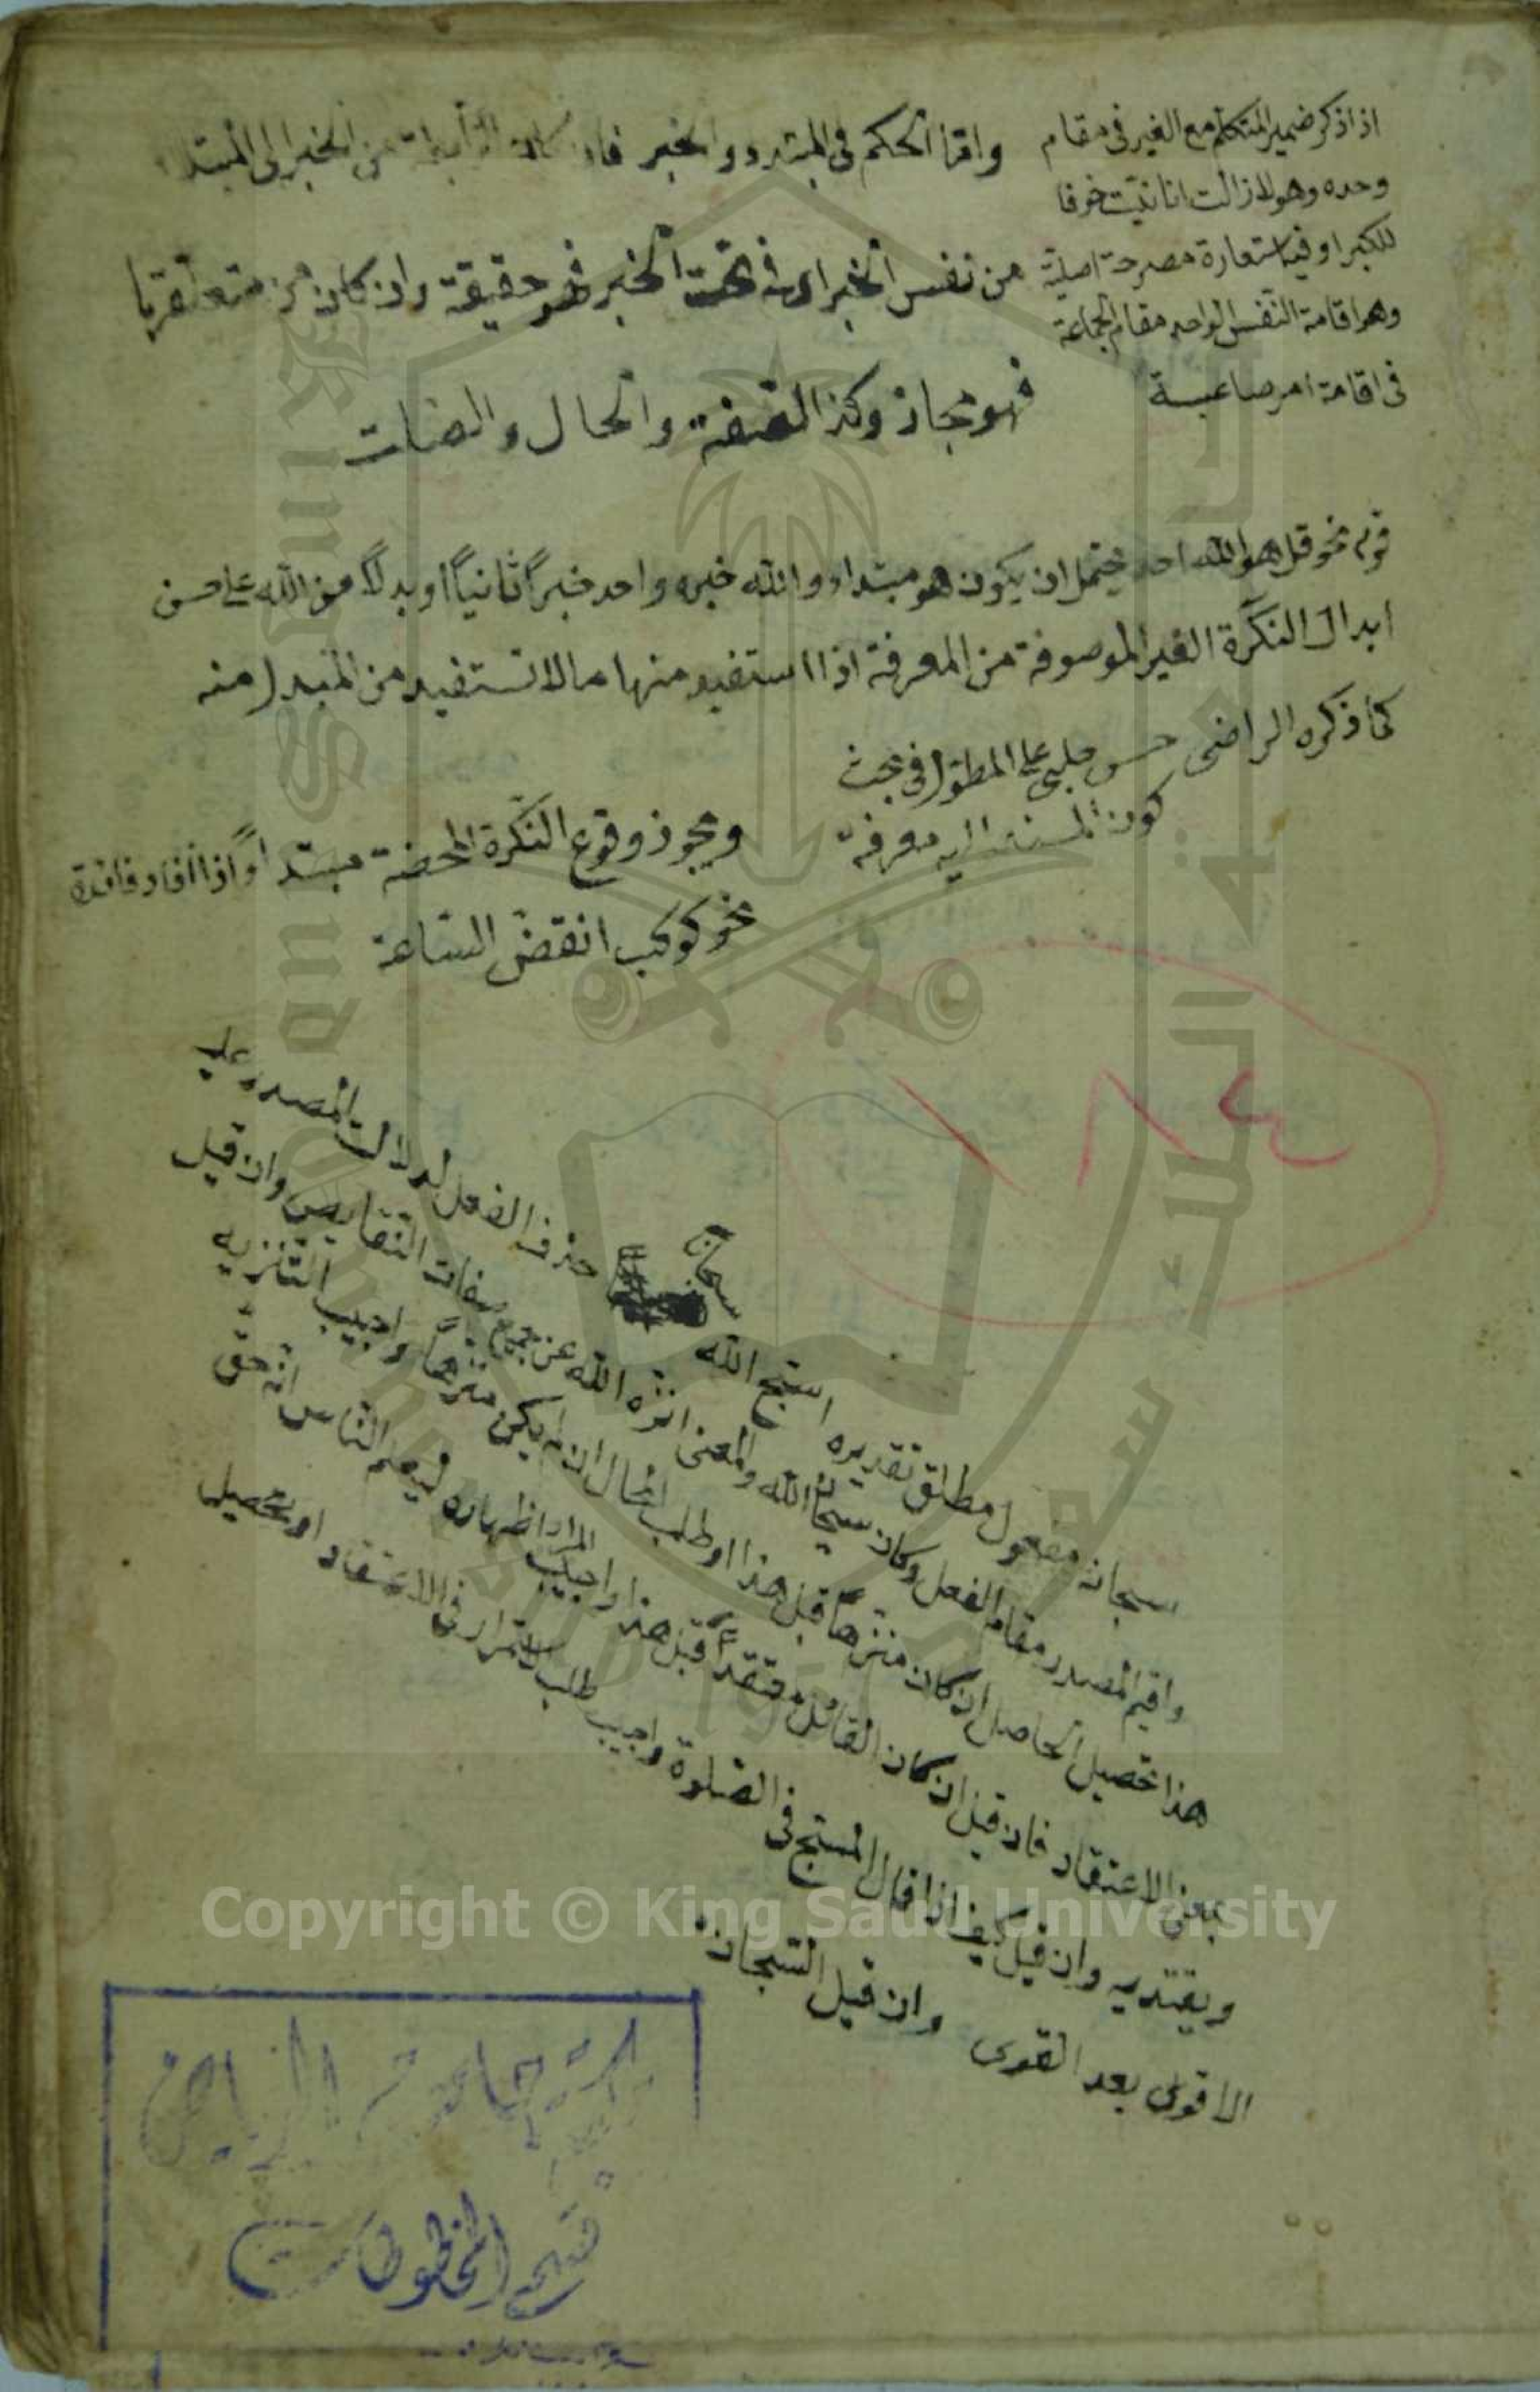 اذا ذكر ضمير المتكلم مع الغير في مقام
وحده وهو لازالت انانيت خرفا
للكبر او فيه استعارة مصرحة اصلية
وهو اقامة النفس الواحد مقام الجماعة
في اقامة امر صاعبة
واما الحكم في المبتدء والخبر فان كان من الخبر الى المبتداء
من نفس الخبر فهو حقيقة وان كان من متعلقربا
فهو مجاز وكذا الصفة والحال والصفات
قوله نحو قل هو الله احد يحتمل ان يكون هو مبتداء والله خبره واحد خبراً ثانياً او بدلاً من الله على حسن
ابدال النكرة الغير الموصوفة من المعرفة اذا استفيد منها ما لا تستفيد من المبدل منه
كما ذكره الراضى حسن چلبي على المطول في بحث
كون المسند اليه معرفة
ويجوز وقوع النكرة المحضة مبتداءً اذا افاد فائدة
نحو كوكب انقض الساعة
١٨٤
سبحان
سبحان مفعول مطلق تقديره اسبح الله حذف الفعل لدلالت المصدر عليه
واقيم المصدر مقام الفعل وكان سبحان الله والمعنى انزه الله عن جميع صفات النقايص وان قيل
هذا تحصيل الحاصل ان كان منزها قبل هذا او طلب المحال ان لم يكن منزهاً واجيب التنزيه
بمعنى الاعتقاد فان قيل ان كان القائل معتقداً قبل هذا واجيب المراد اظهاره ليعلم الناس انه حق
ويقتديه وان قيل كيف اذا قال المسبح في الصلوة واجيب طلب لاستمرار في الاعتقاد او تحصيل
الاقوى بعد القوى وان قيل السبحان
Copyright © King Saud University
جامعة الملك سعود
King Saud University
مكتبة جامعة الرياض
قسم المخطوطات